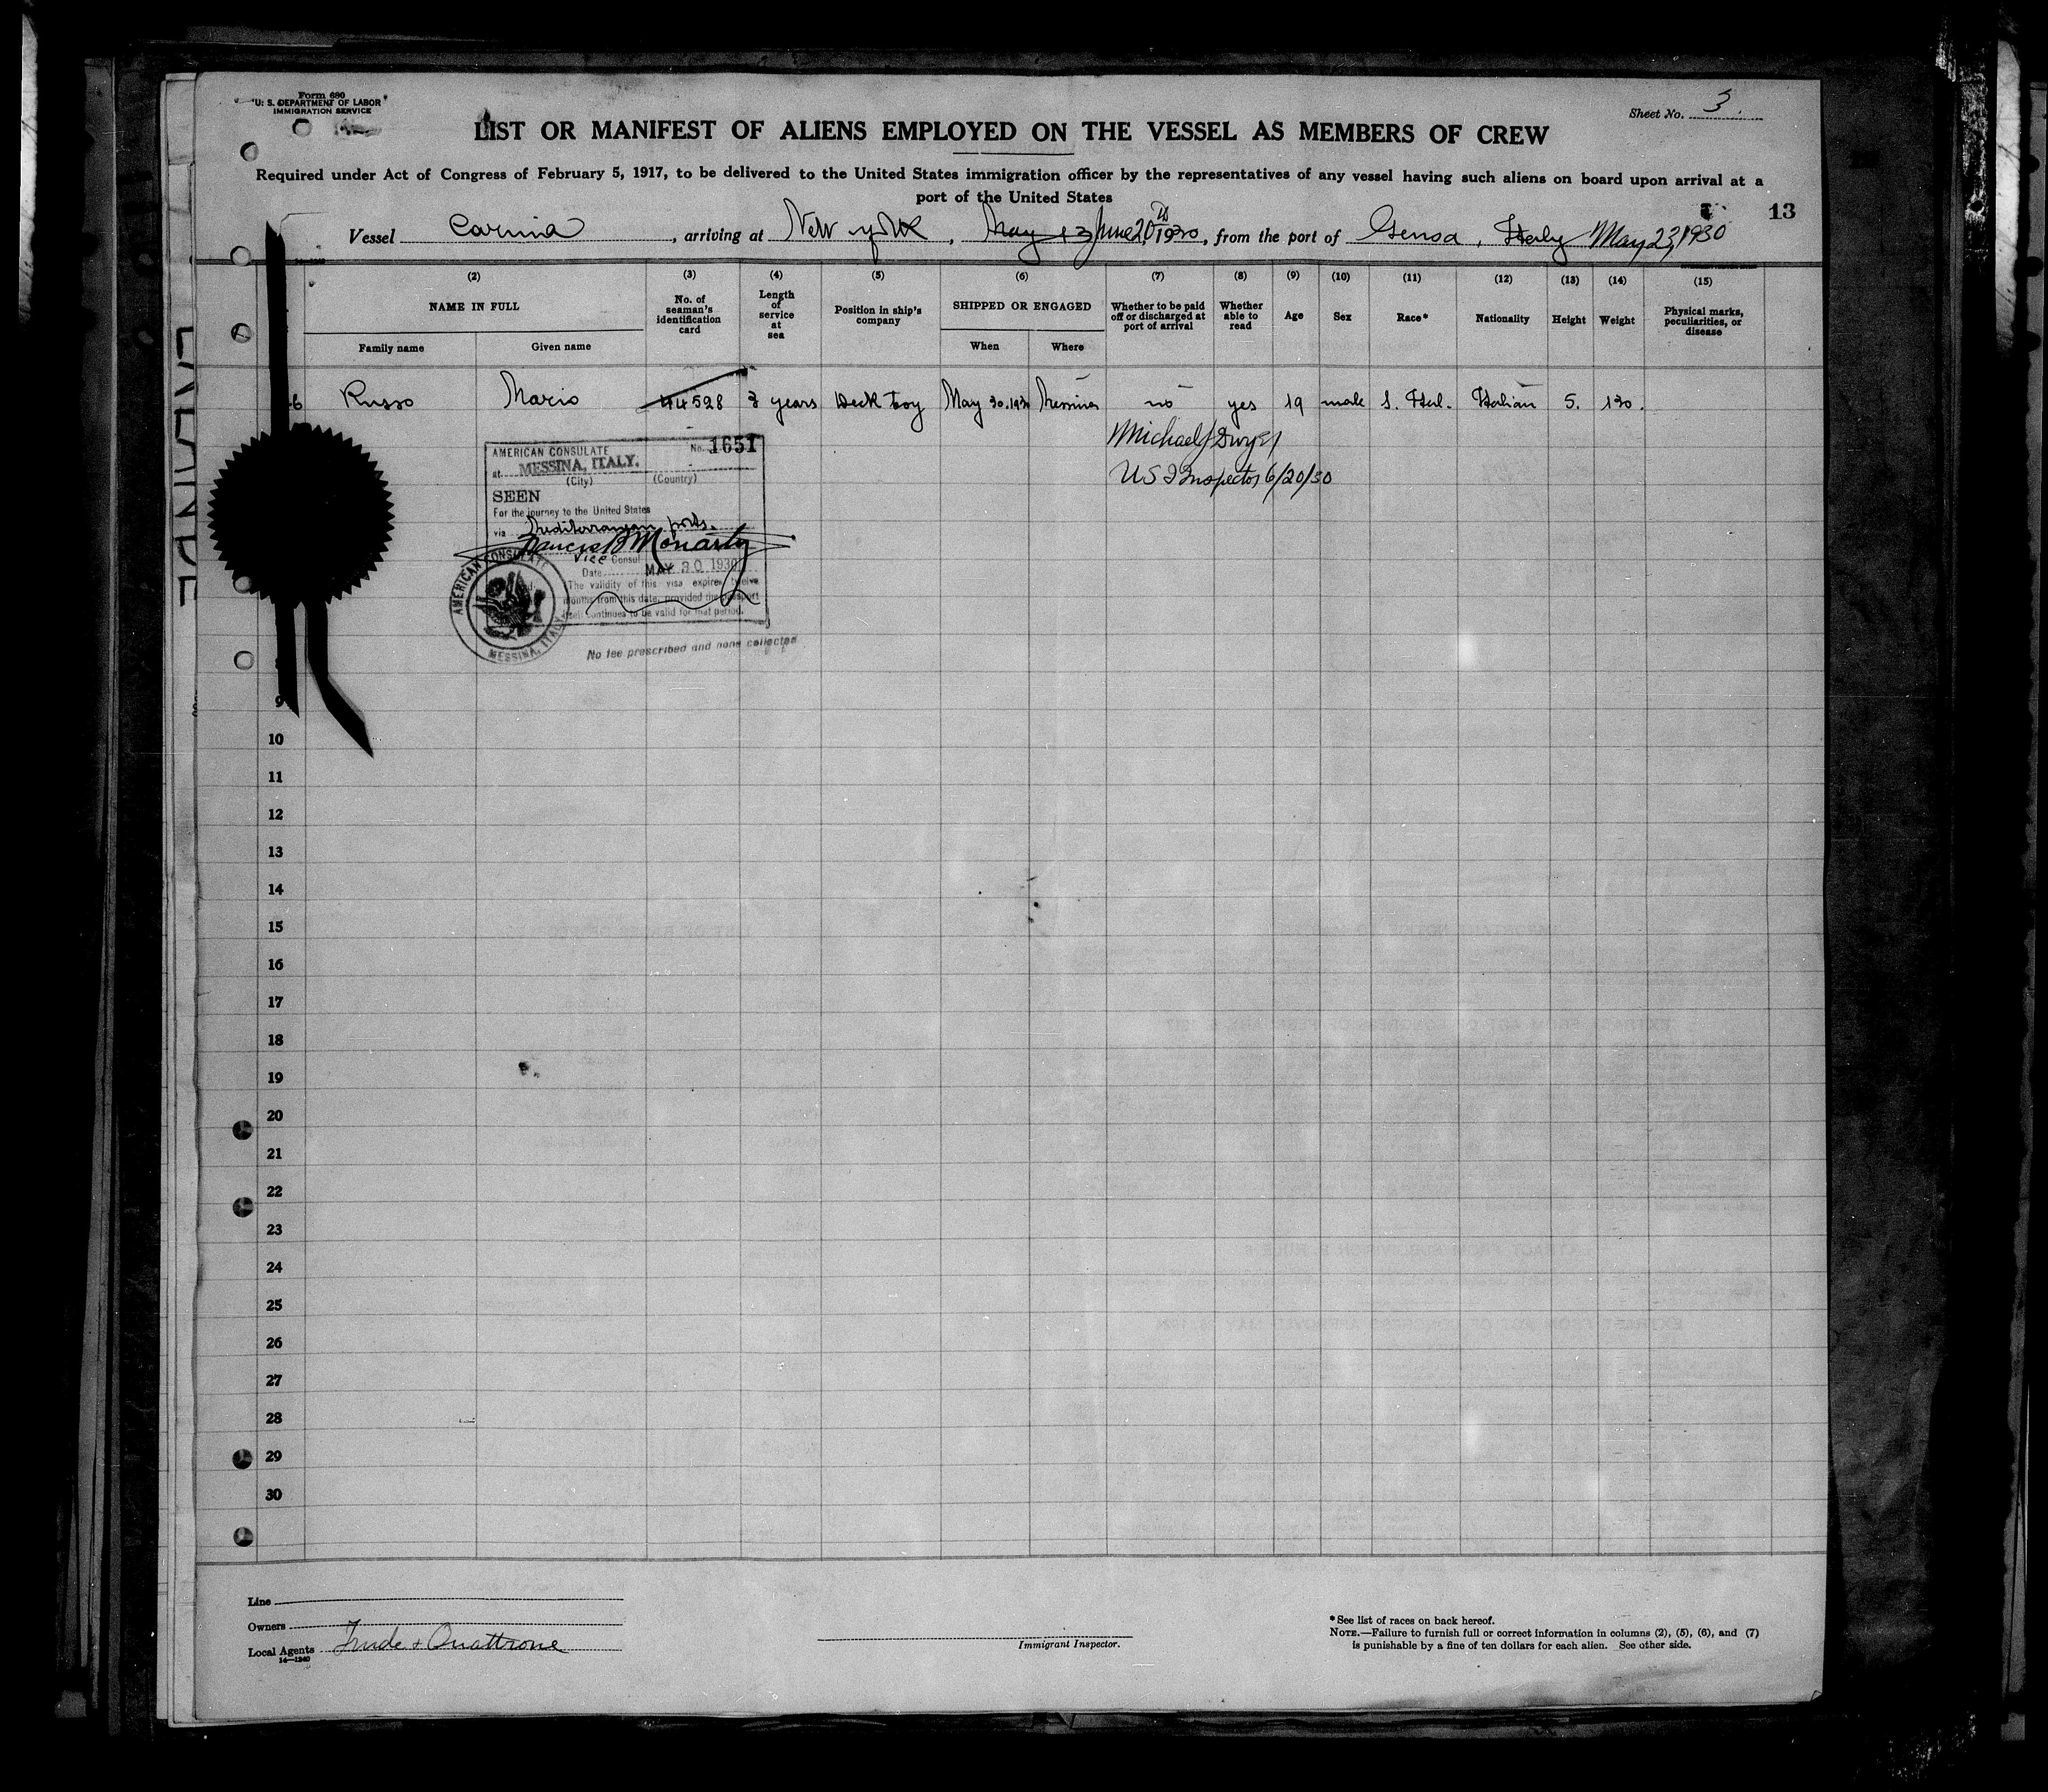 Form 680
U. S. DEPARTMENT OF LABOR
IMMIGRATION SERVICE
Sheet No. 3.
LIST OR MANIFEST OF ALIENS EMPLOYED ON THE VESSEL AS MEMBERS OF CREW
Required under Act of Congress of February 5, 1917, to be delivered to the United States immigration officer by the representatives of any vessel having such aliens on board upon arrival at a
port of the United States
13
Vessel Carnia, arriving at New York, May June 20th 1930, from the port of Genoa, Italy May 23, 1930
(2) (3) (4) (5) (6) (7) (8) (9) (10) (11) (12) (13) (14) (15)
NAME IN FULL
Family name Given name
No. of seaman's identification card
Length of service at sea
Position in ship's company
SHIPPED OR ENGAGED
When Where
Whether to be paid off or discharged at port of arrival
Whether able to read
Age
Sex
Race*
Nationality
Height
Weight
Physical marks, peculiarities, or disease
46 Russo Mario 44528 3 years Deck boy May 30.1930 Messina no yes 19 male S. Ital. Italian 5. 130.
Michael J Dwyer
US I Inspector 6/20/30
AMERICAN CONSULATE No. 1651
at MESSINA, ITALY.
(City) (Country)
SEEN
For the journey to the United States
via Mediterranean ports.
Francis B Moriarty
Vice Consul
Date MAY 30 1930
The validity of this visa expires twelve
months from this date, provided the passport
itself continues to be valid for that period.
AMERICAN CONSULATE
MESSINA, ITALY
No fee prescribed and none collected
9
10
11
12
13
14
15
16
17
18
19
20
21
22
23
24
25
26
27
28
29
30
Line
Owners
Local Agents Trude & Quattrone
14—1240
Immigrant Inspector.
*See list of races on back hereof.
NOTE.—Failure to furnish full or correct information in columns (2), (5), (6), and (7)
is punishable by a fine of ten dollars for each alien. See other side.